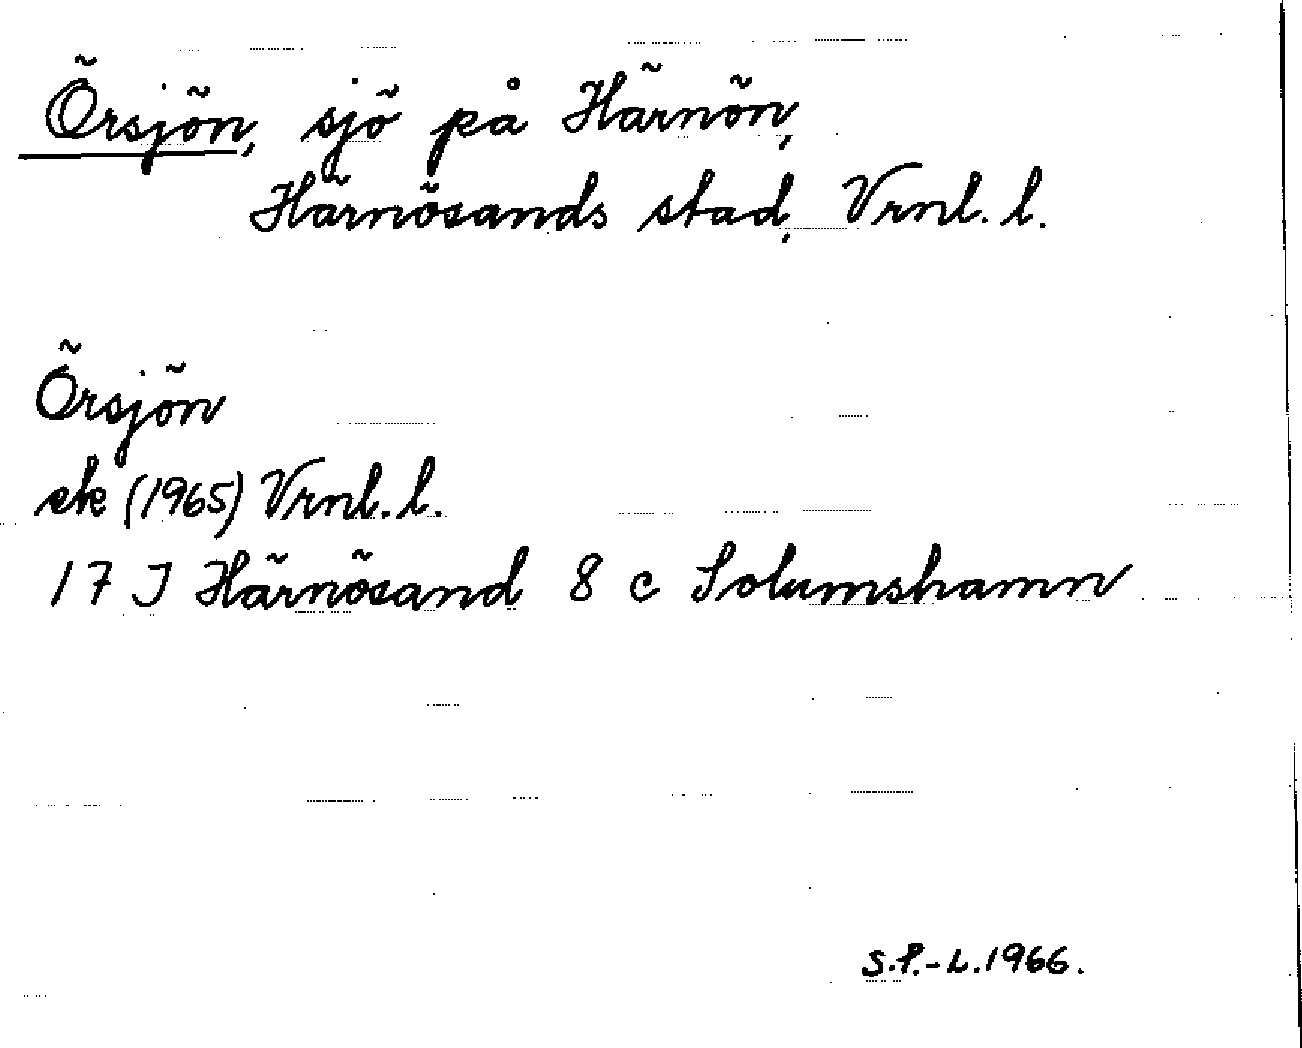 Örsjön, sjö på Härnön,
Härnösands stad, Vrnl. l.
Örsjön
ek (1965) Vrnl. l.
17 J Härnösand 8 c Solumshamn
S.P.-L. 1966.